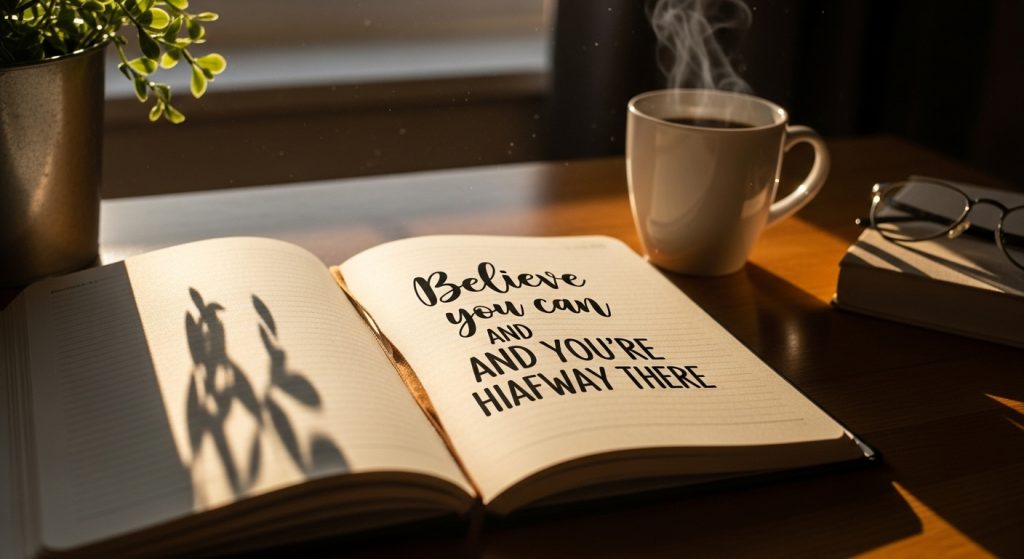 Believe
you can
AND
AND YOU'RE
HIAFWAY THERE